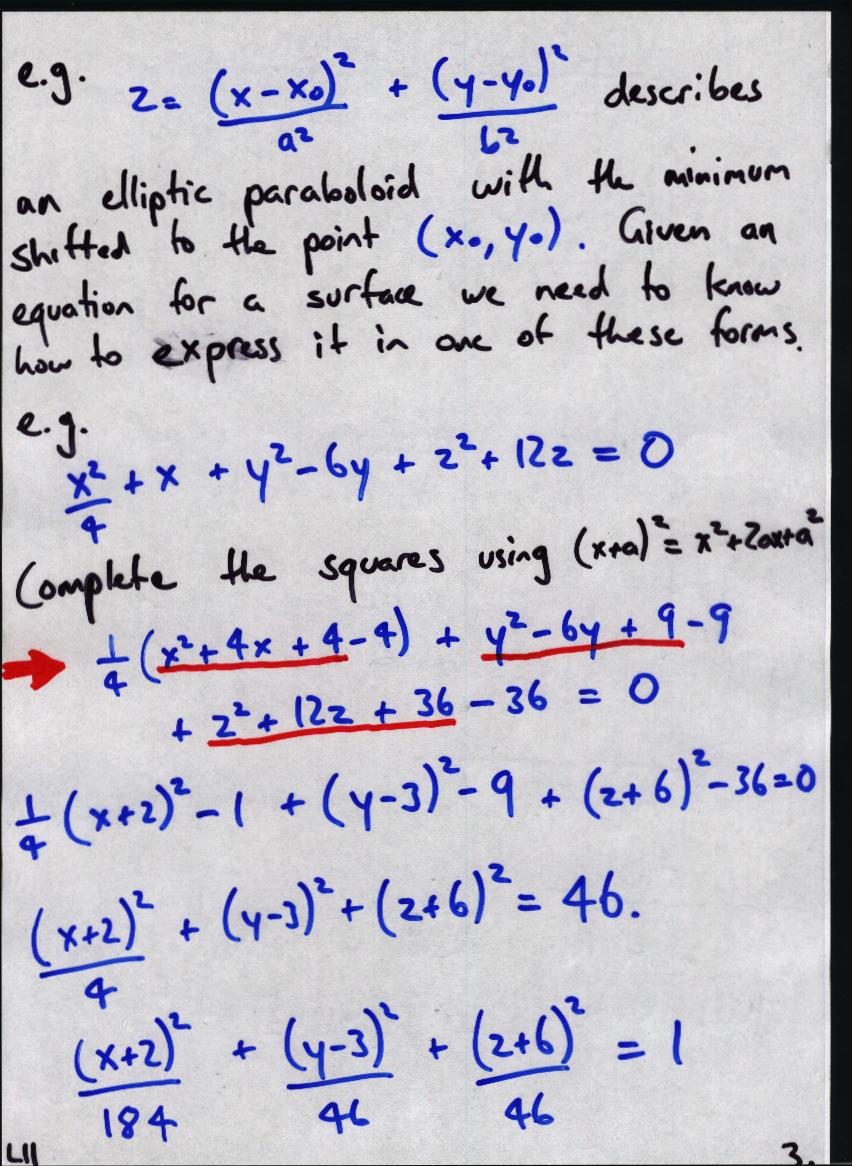 e.g. z = (x-x₀)²/a² + (y-y₀)²/b² describes
an elliptic paraboloid with the minimum
shifted to the point (x₀, y₀). Given an
equation for a surface we need to know
how to express it in one of these forms.
e.g.
x²/4 + x + y² - 6y + z² + 12z = 0
Complete the squares using (x+a)² = x²+2ax+a²
1/4 (x² + 4x + 4 - 4) + y² - 6y + 9 - 9
+ z² + 12z + 36 - 36 = 0
1/4 (x+2)² - 1 + (y-3)² - 9 + (z+6)² - 36 = 0
(x+2)²/4 + (y-3)² + (z+6)² = 46.
(x+2)²/184 + (y-3)²/46 + (z+6)²/46 = 1
L11 3.